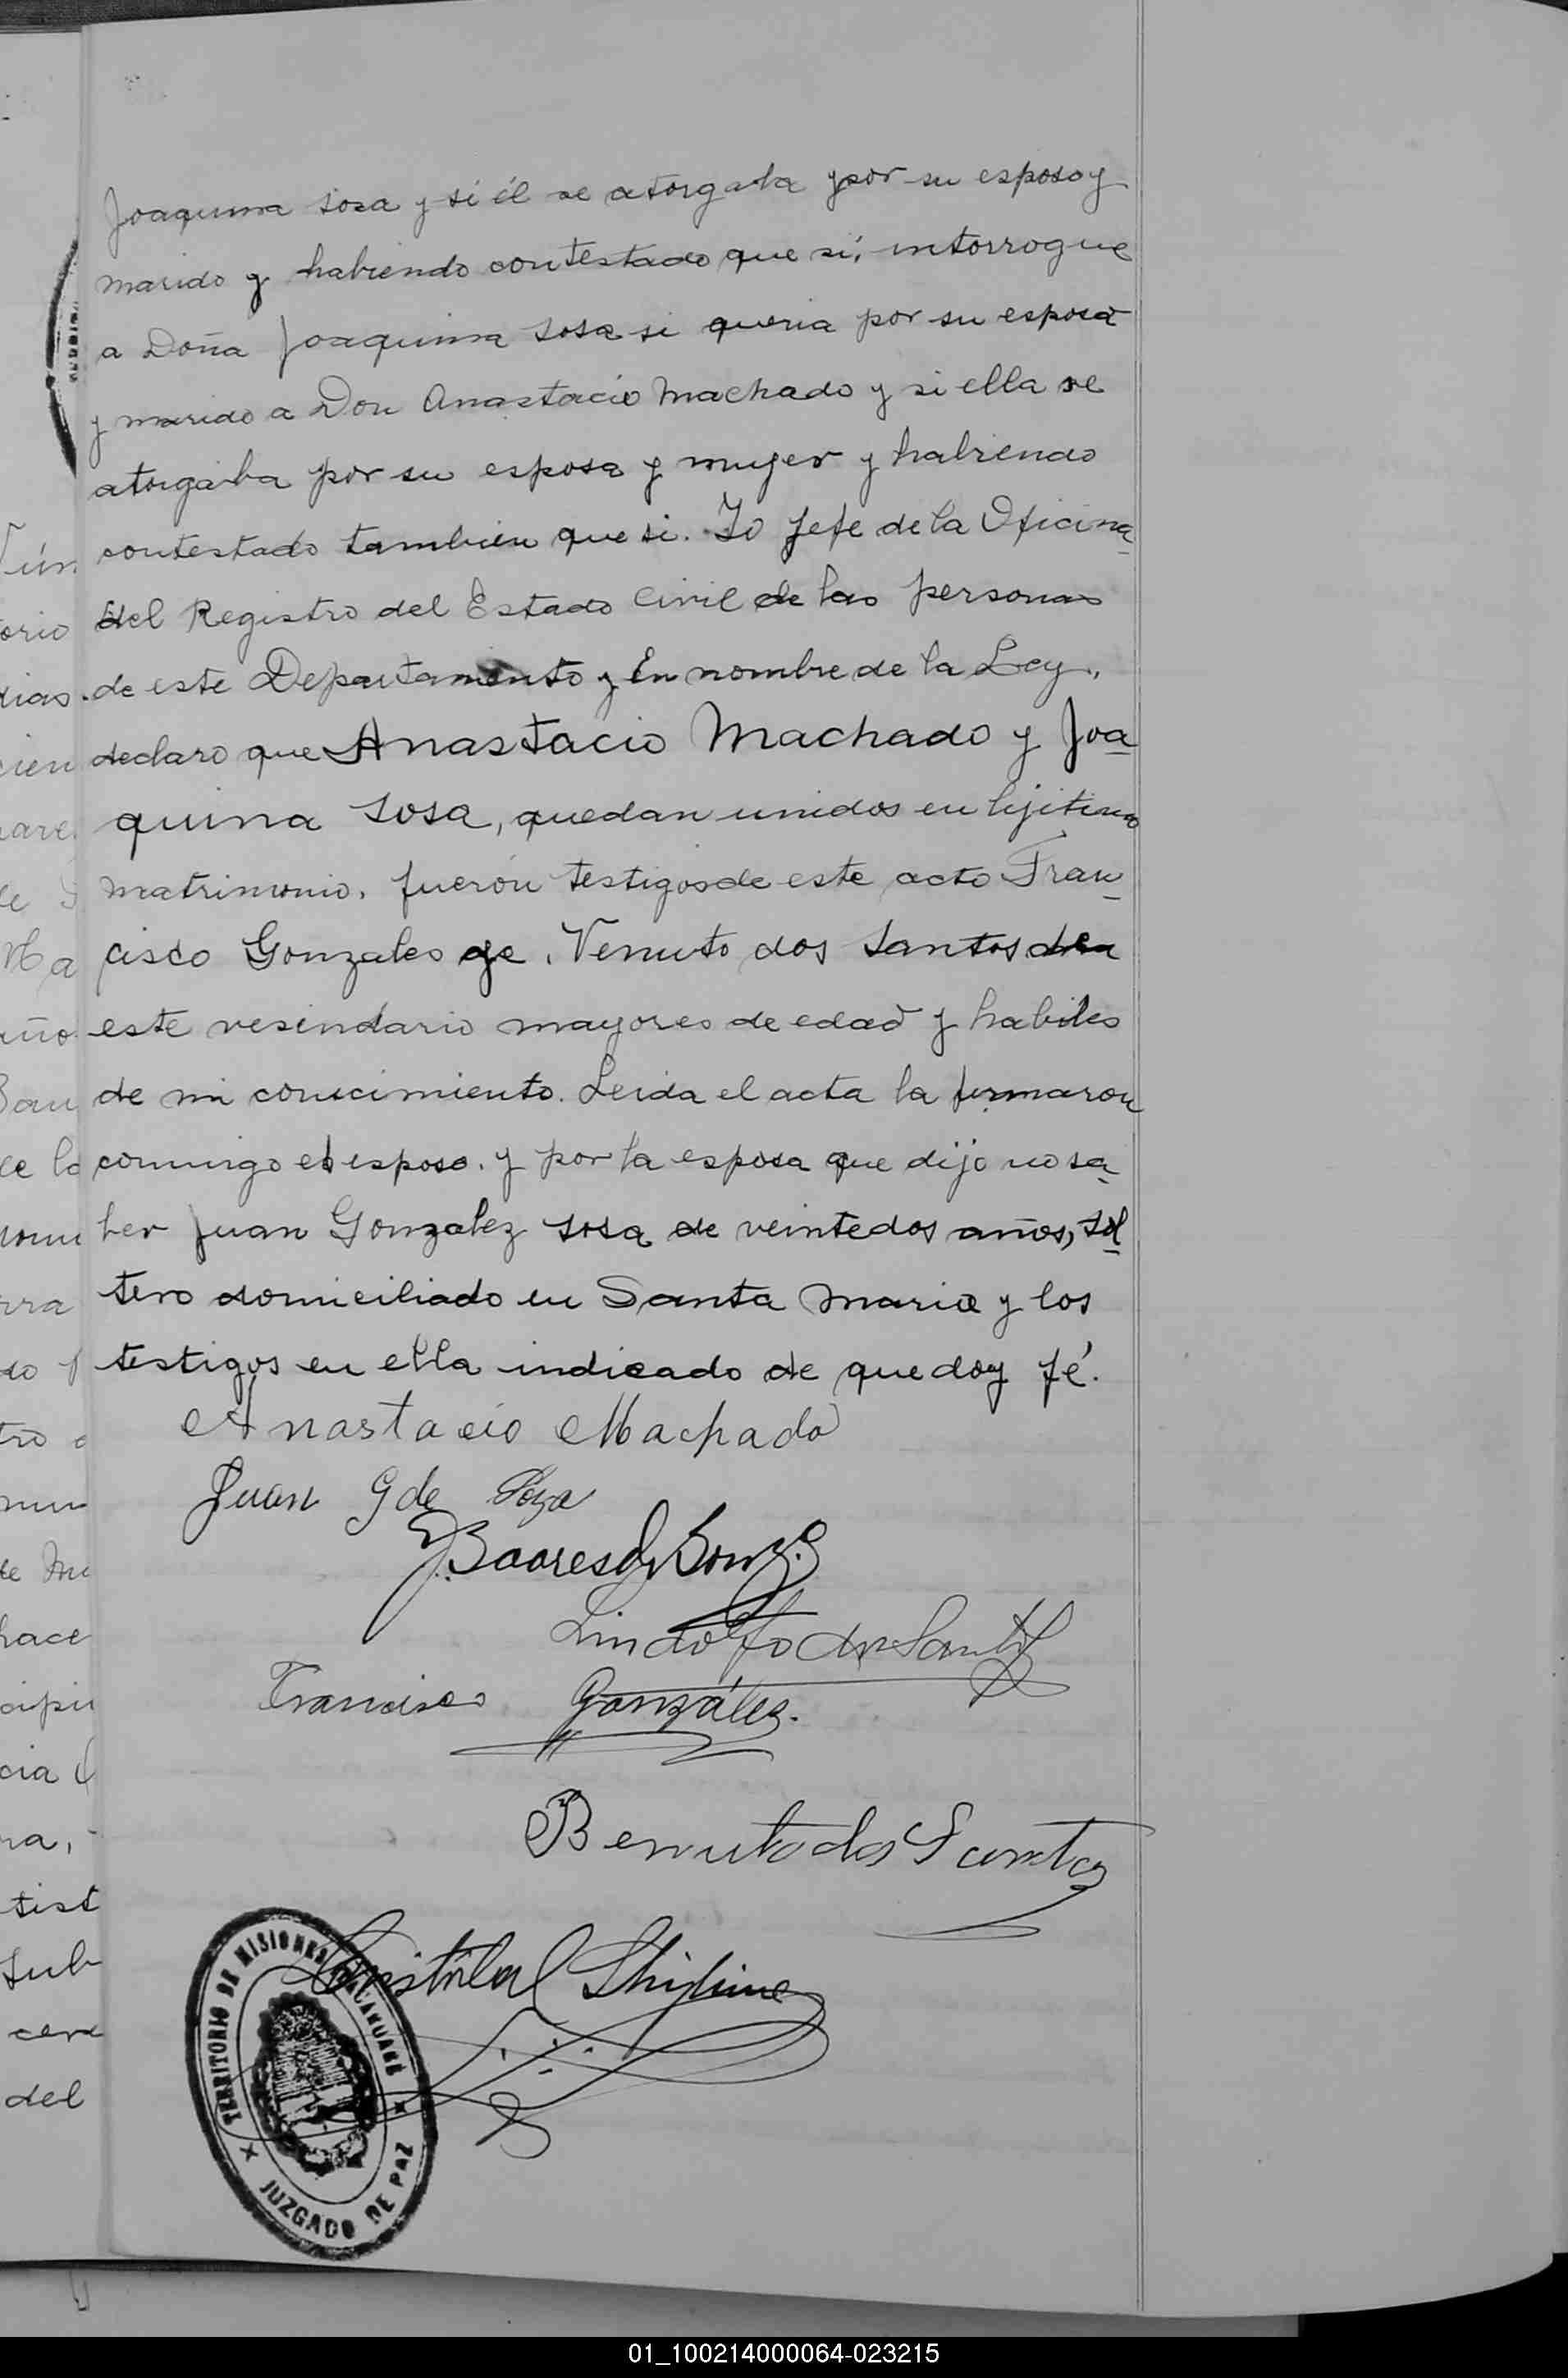 Joaquina Sosa y si él se atorgaba por su esposo y
marido y habiendo contestado que si, intorrogue
a Doña Joaquina Sosa si queria por su esposa
y marido a Don Anastacio Machado y si ella se
atorgaba por su esposa y mujer y habiendo
contestado tambien que si. Yo Jefe de la Oficina
del Registro del Estado Civil de las personas
de este Departamento y En nombre de la Ley,
declaro que Anastacio Machado y Joa
quina Sosa, quedan unidos en lijitimo
matrimonio. fueron testigos de este acto Fran
cisco Gonzales Venuto dos Santos
este vesindario mayores de edad y habiles
de mi conocimiento. Leida el acta la firmaron
conmigo el esposo. y por la esposa que dijo no sa
ber Juan Gonzalez Sosa de veintedos años, sol
tero domiciliado en Santa Maria y los
testigos en ella indicado de que doy fé.
Anastacio Machado
Juan G de Soza
Lindolfo dos Santos
Francisco González.
Benuto dos Santos
Cristobal
TERRITORIO DE MISIONES
JUZGADO DE PAZ
Tún
orio
dias
cien
Ma
año
San
de la
do
tro
de
hace
cia
ra,
test
Sub
cere
del
01_100214000064-023215